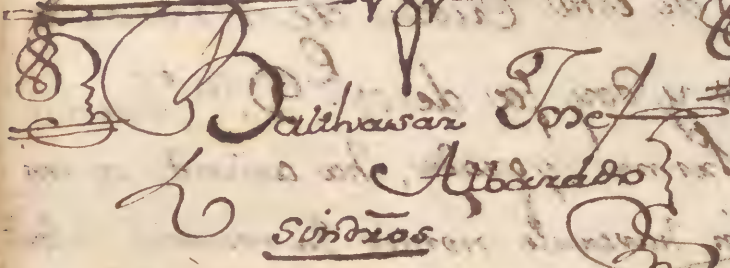 Balthasar Jose
Albarado
sin drõs